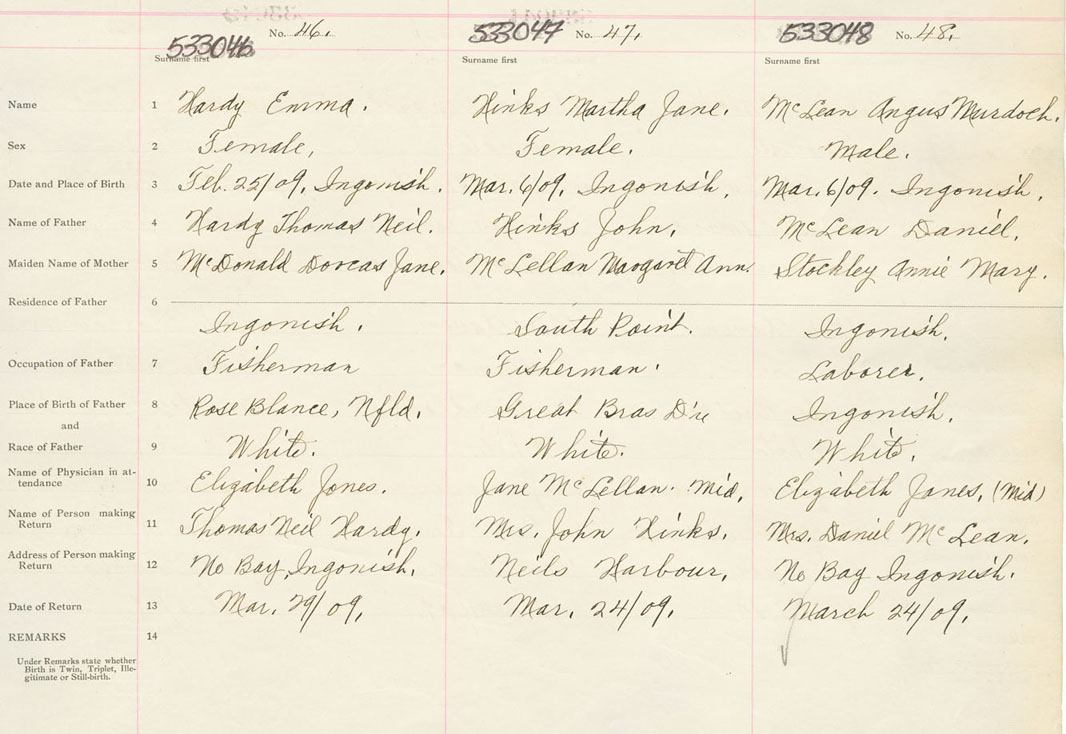 533046 No. 46. 533047 No. 47. 533048 No. 48.
Surname first Surname first Surname first
Name 1 Hardy Emma. Hinks Martha Jane. McLean Angus Murdoch.
Sex 2 Female, Female. Male.
Date and Place of Birth 3 Feb. 25/09, Ingonish. Mar. 6/09, Ingonish, Mar. 6/09. Ingonish,
Name of Father 4 Hardy Thomas Neil. Hinks John, McLean Daniel,
Maiden Name of Mother 5 McDonald Dorcas Jane. McLellan Margaret Ann. Stockley Annie Mary.
Residence of Father 6
Ingonish. South Point. Ingonish,
Occupation of Father 7 Fisherman Fisherman. Laborer.
Place of Birth of Father 8 Rose Blance, Nfld. Great Bras D'u Ingonish.
and
Race of Father 9 White. White. White.
Name of Physician in at-
tendance 10 Elizabeth Jones. Jane McLellan. Mid, Elizabeth Jones, (Mid)
Name of Person making
Return 11 Thomas Neil Hardy. Mrs. John Hinks. Mrs. Daniel McLean.
Address of Person making
Return 12 No Bay, Ingonish. Neils Harbour, No Bay Ingonish.
Date of Return 13 Mar. 29/09, Mar. 24/09, March 24/09,
REMARKS 14
Under Remarks state whether
Birth is Twin, Triplet, Ille-
gitimate or Still-birth.